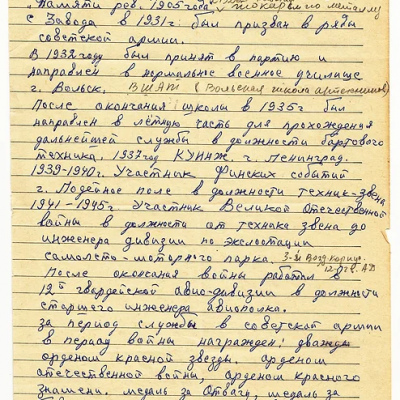 "Памяти рев. 1905 года"
с Завода в 1931г. был призван в ряды
советской армии.
В 1932 году был принят в партию и
направлен в нормальное военное училище
г. Вольск. ВШАТ (Вольская школа авиатехников)
После окончания школы в 1935г был
направлен в лётную часть для прохождения
дальнейшей службы в должности бортового
техника. 1937год КУИНЖ. г. Ленинград.
1939-1940г. Участник Финских событий
г. Лодейное поле в должности техник-звена
1941-1945г. Участник Великой Отечественной
войны в должности от техника звена до
инженера дивизии по эксплотации
самолето-моторного парка. 3-й Возд. корпус.
После окончания войны работал в
12ой гвардейской авио-дивизии в должности
старшего инженера авиополка.
за период службы в советской армии
в период войны награжден: дважды
орденом красной звезды. орденом
отечественной войны, орденом Красного
знамени. медаль за Отвагу, медаль за